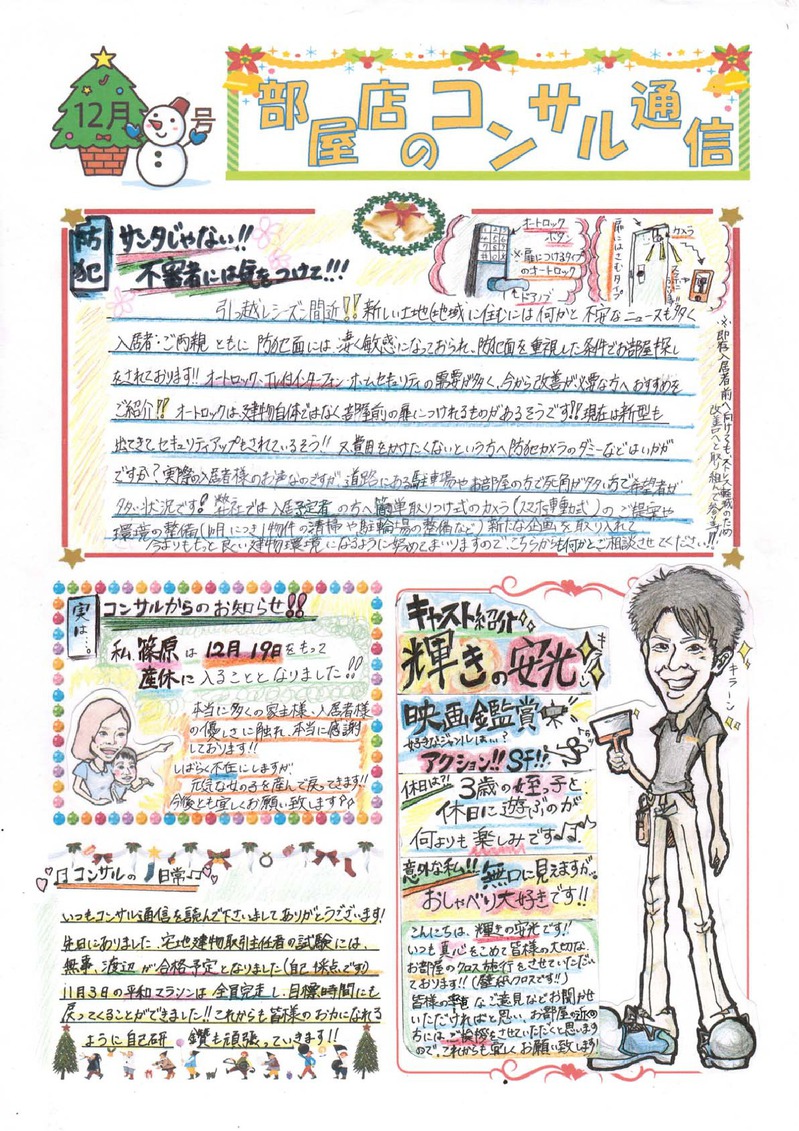 12月号
部屋店のコンサル通信
防犯
サンタじゃない!!
不審者には気をつけて!!!
オートロック
ボタン
※扉につけるタイプ
のオートロック
ドアノブ
扉にはさむタイプ
カメラ
引っ越しシーズン間近!!新しい土地(地域)に住むには何かと不安なニュースも多く
入居者・ご両親ともに防犯面には、凄く敏感になっておられ、防犯面を重視した条件でお部屋探し
をされております!!オートロック、TV付インターフォン、ホームセキュリティの需要が多く、今から改善が必要な方へおすすめを
ご紹介!!オートロックは、建物自体ではなく各部屋前の扉につけれるものがあるそうです!!現在は新型も
出てきて、セキュリティアップもされているそう!!又、費用をかけたくないという方へ防犯カメラのダミーなどはいかが
ですか?実際の入居者様のお声なのですが、道路にある駐車場やお部屋の方で死角が多い方で希望者が
多い状況です!弊社では入居予定者の方へ簡単取りつけ式のカメラ(スマホ連動式)のご提案や
環境の整備(1ヶ月につき1物件の清掃や駐輪場の整備など)新たな企画を取り入れて
今よりももっと良い建物環境になるように努めてまいりますので、こちらからも何かとご相談させてください!!
実は…。
コンサルからのお知らせ!!
私、篠原は12月19日をもって
産休に入ることとなりました!!
本当に多くの家主様、入居者様
の優しさに触れ、本当に感謝
しております!!
しばらく不在にしますが
元気な女の子を産んで戻ってきます!!
今後とも宜しくお願い致します
コンサルの日常♫
いつもコンサル通信を読んで下さいましてありがとうございます!
先日にありました、宅地建物取引主任者の試験には、
無事、渡辺が合格予定となりました(自己採点です)
11月3日の平和マラソンは全員完走し、目標時間にも
戻ってくることができました!!これからも皆様のお力になれる
ように自己研鑽も頑張っていきます!!
キャスト紹介
輝きの安光
キラーン
映画鑑賞
好きなジャンルは…?
アクション!!SF!!
休日は?!
3歳の姪っ子と
休日に遊ぶのが
何よりも楽しみです♫
意外な私!!
無口に見えますが、
おしゃべり大好きです!!
こんにちは、輝きの安光です!!
いつも真心をこめて皆様の大切な、
お部屋のクロス施行をさせていただいて
おります!!(壁がクロスです!!)
皆様の率直なご意見などお聞かせ
いただければと思い、お部屋の近くの
方には、ご挨拶をさせていただくと思います
ので、これからも宜しくお願い致します!
キラーン